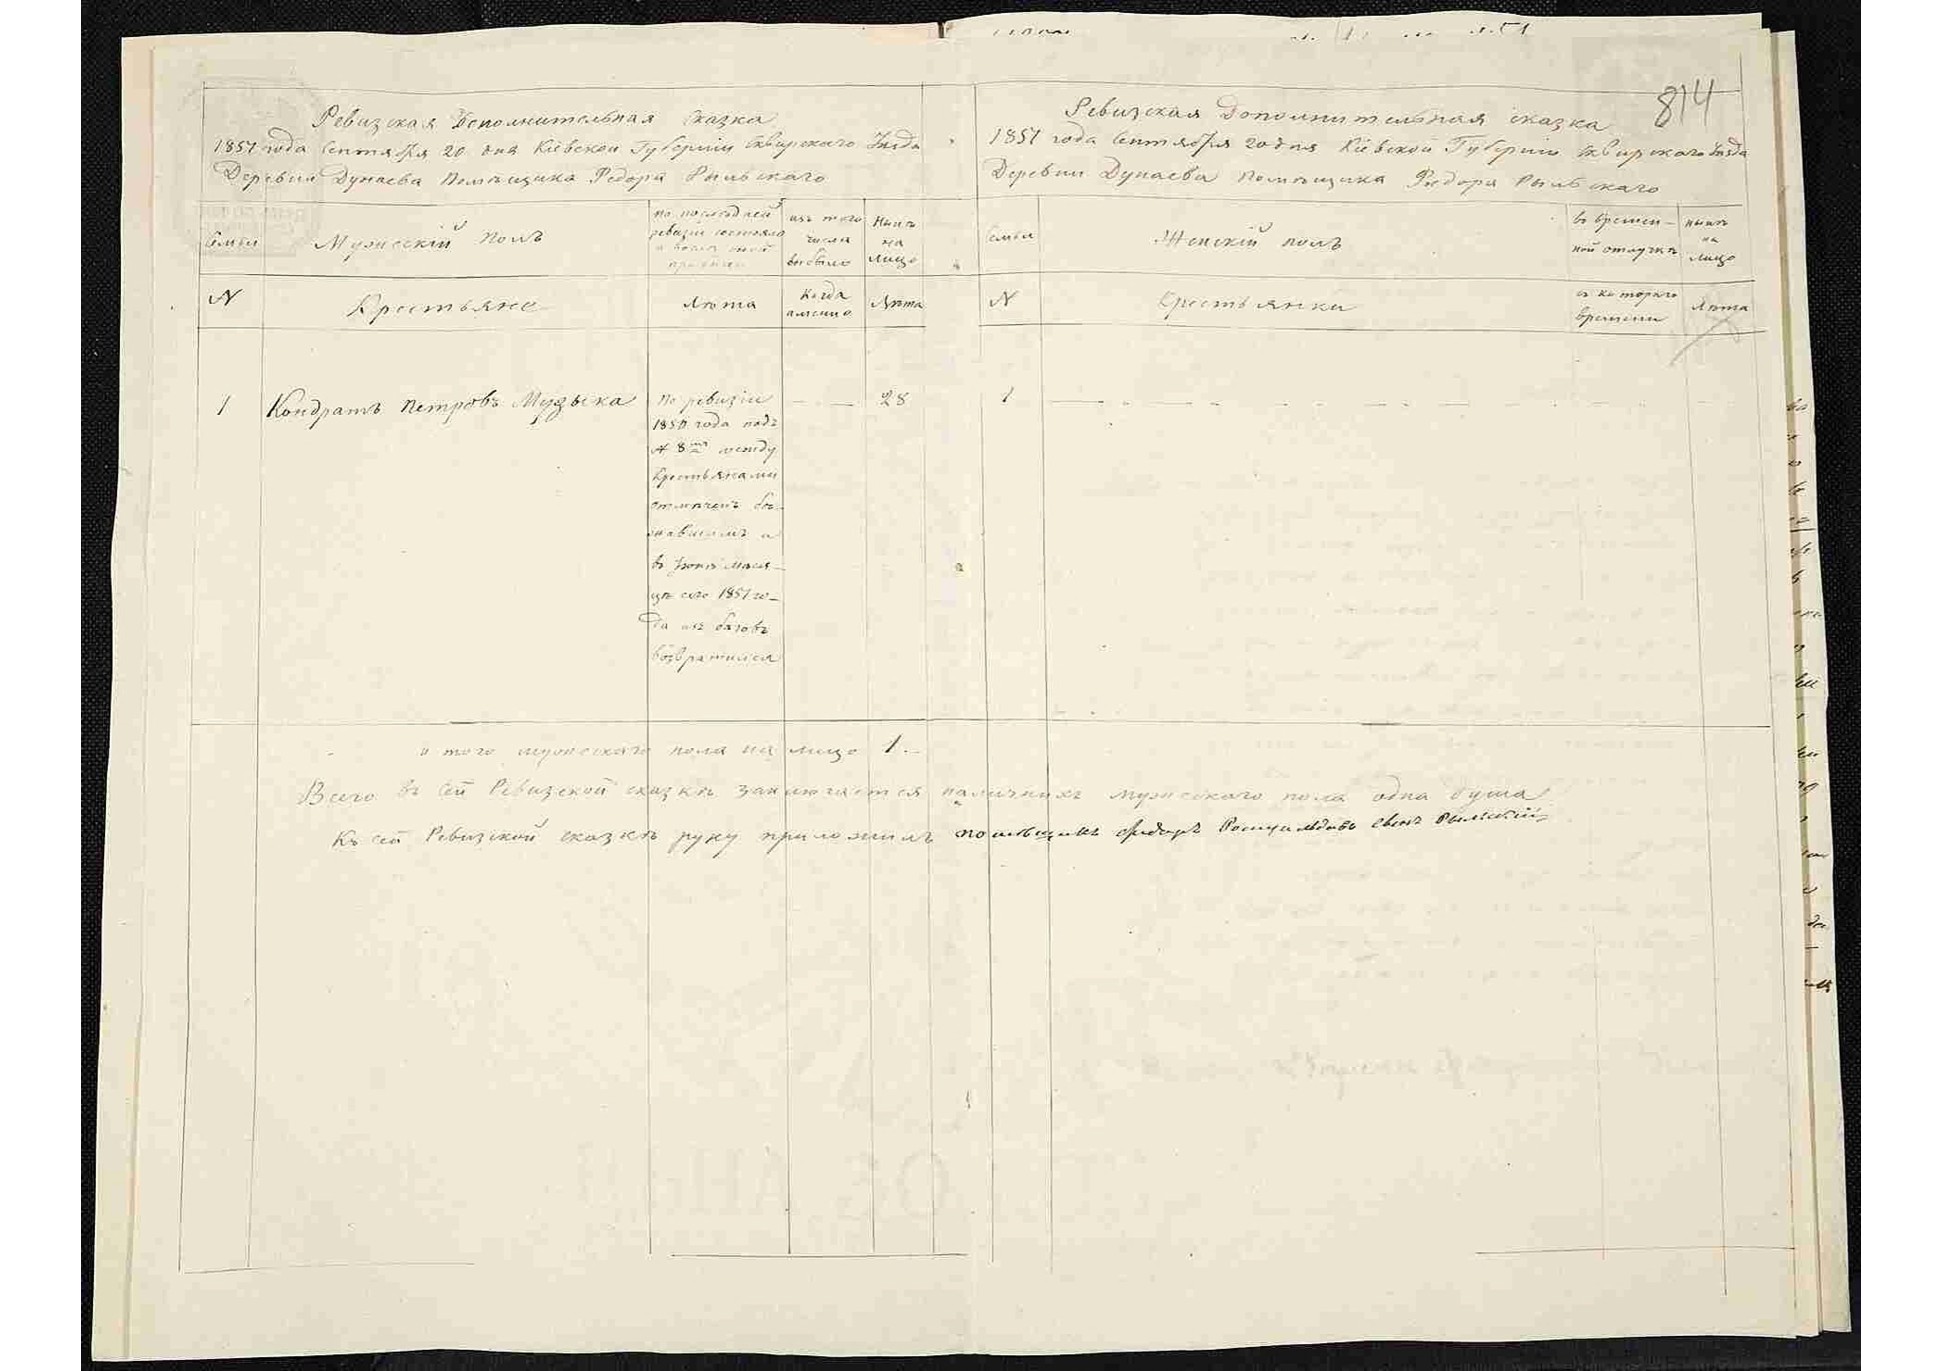 814
Ревизская Дополнительная сказка
1857 года Сентября 20 дня Кіевской Губерніи Сквирского Уѣзда
Деревни Дунаева Помѣщика Федора Рыльскаго
Семьи
Мужескій полъ
по последней
ревизіи состояло
и после оной
прибыло
изъ того
числа
выбыло
Нынѣ
на
лицо
N
Крестьяне
Лѣта
Когда
именно
Лѣта
1
Кондратъ Петровъ Музыка
По ревизіи
1850 года подъ
N 8 между
Крестьянами
отмѣченъ бѣ-
жавшимъ а
въ Іюнѣ меся-
цѣ сего 1857 го-
да изъ бѣговъ
возвратился
28
Ревизская Дополнительная сказка
1857 года Сентября 20 дня Кіевской Губерніи Сквирского Уѣзда
Деревни Дунаева Помѣщика Федора Рыльскаго
Семьи
Женскій полъ
въ времен-
ной отлучкѣ
нынѣ
на
лицо
N
Крестьянки
съ котораго
времени
Лѣта
1
и того мужескаго пола на лицо 1.
Всего въ сей Ревизской сказкѣ заключается наличныхъ мужескаго пола одна душа
Къ сей Ревизской сказкѣ руку приложилъ помѣщикъ Федоръ Ромуальдовъ сынъ Рыльскій